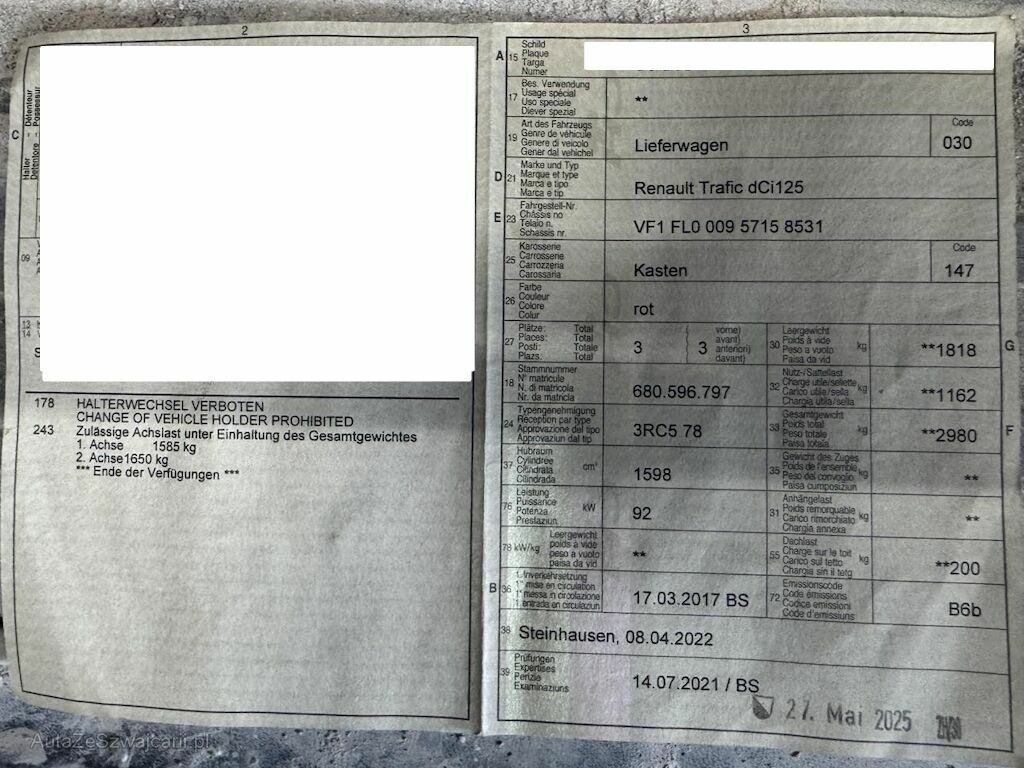 2
Halter Détenteur
Detentore Possessur
C
09
13
14
S
178 HALTERWECHSEL VERBOTEN
CHANGE OF VEHICLE HOLDER PROHIBITED
243 Zulässige Achslast unter Einhaltung des Gesamtgewichtes
1. Achse 1585 kg
2. Achse1650 kg
*** Ende der Verfügungen ***
3
A 15 Schild
Plaque
Targa
Numer
17 Bes. Verwendung
Usage spécial
Uso speciale
Diever spezial
**
19 Art des Fahrzeugs
Genre de véhicule
Genere di veicolo
Gener dal vehichel
Lieferwagen
Code
030
D 21 Marke und Typ
Marque et type
Marca e tipo
Marca e tip
Renault Trafic dCi125
E 23 Fahrgestell-Nr.
Châssis no
Telaio n.
Schassis nr.
VF1 FL0 009 5715 8531
25 Karosserie
Carrosserie
Carrozzeria
Carossaria
Kasten
Code
147
26 Farbe
Couleur
Colore
Colur
rot
27 Plätze: Total
Places: Total
Posti: Totale
Plazs. Total
3
3 vorne)
avant)
anteriori)
davant)
30 Leergewicht
Poids à vide
Peso a vuoto
Paisa da vid
kg
**1818
G
18 Stammnummer
N° matricule
N. di matricola
Nr. da matricla
680.596.797
32 Nutz-/Sattellast
Charge utile/sellette
Carico utile/sella
Chargia utila/sella
kg
**1162
24 Typengenehmigung
Réception par type
Approvazione del tipo
Approvaziun dal tip
3RC5 78
33 Gesamtgewicht
Poids total
Peso totale
Paisa totala
kg
**2980
F
37 Hubraum
Cylindrée
Cilindrata
Cilindrada
cm³
1598
35 Gewicht des Zuges
Poids de l'ensemble
Peso del convoglio
Paisa cumposiziun
kg
**
76 Leistung
Puissance
Potenza
Prestaziun
kW
92
31 Anhängelast
Poids remorquable
Carico rimorchiato
Chargia annexa
kg
**
78 kW/kg Leergewicht
poids à vide
peso a vuoto
paisa da vid
**
55 Dachlast
Charge sur le toit
Carico sul tetto
Chargia sin il tetg
kg
**200
B 36 1. Inverkehrsetzung
1re mise en circulation
1a messa in circolazione
1. entrada en circulaziun
17.03.2017 BS
72 Emissionscode
Code émissions
Codice emissioni
Code d'emissiuns
B6b
38 Steinhausen, 08.04.2022
39 Prüfungen
Expertises
Perizie
Examinaziuns
14.07.2021 / BS
27. Mai 2025
AutaZeSzwajcarii.pl